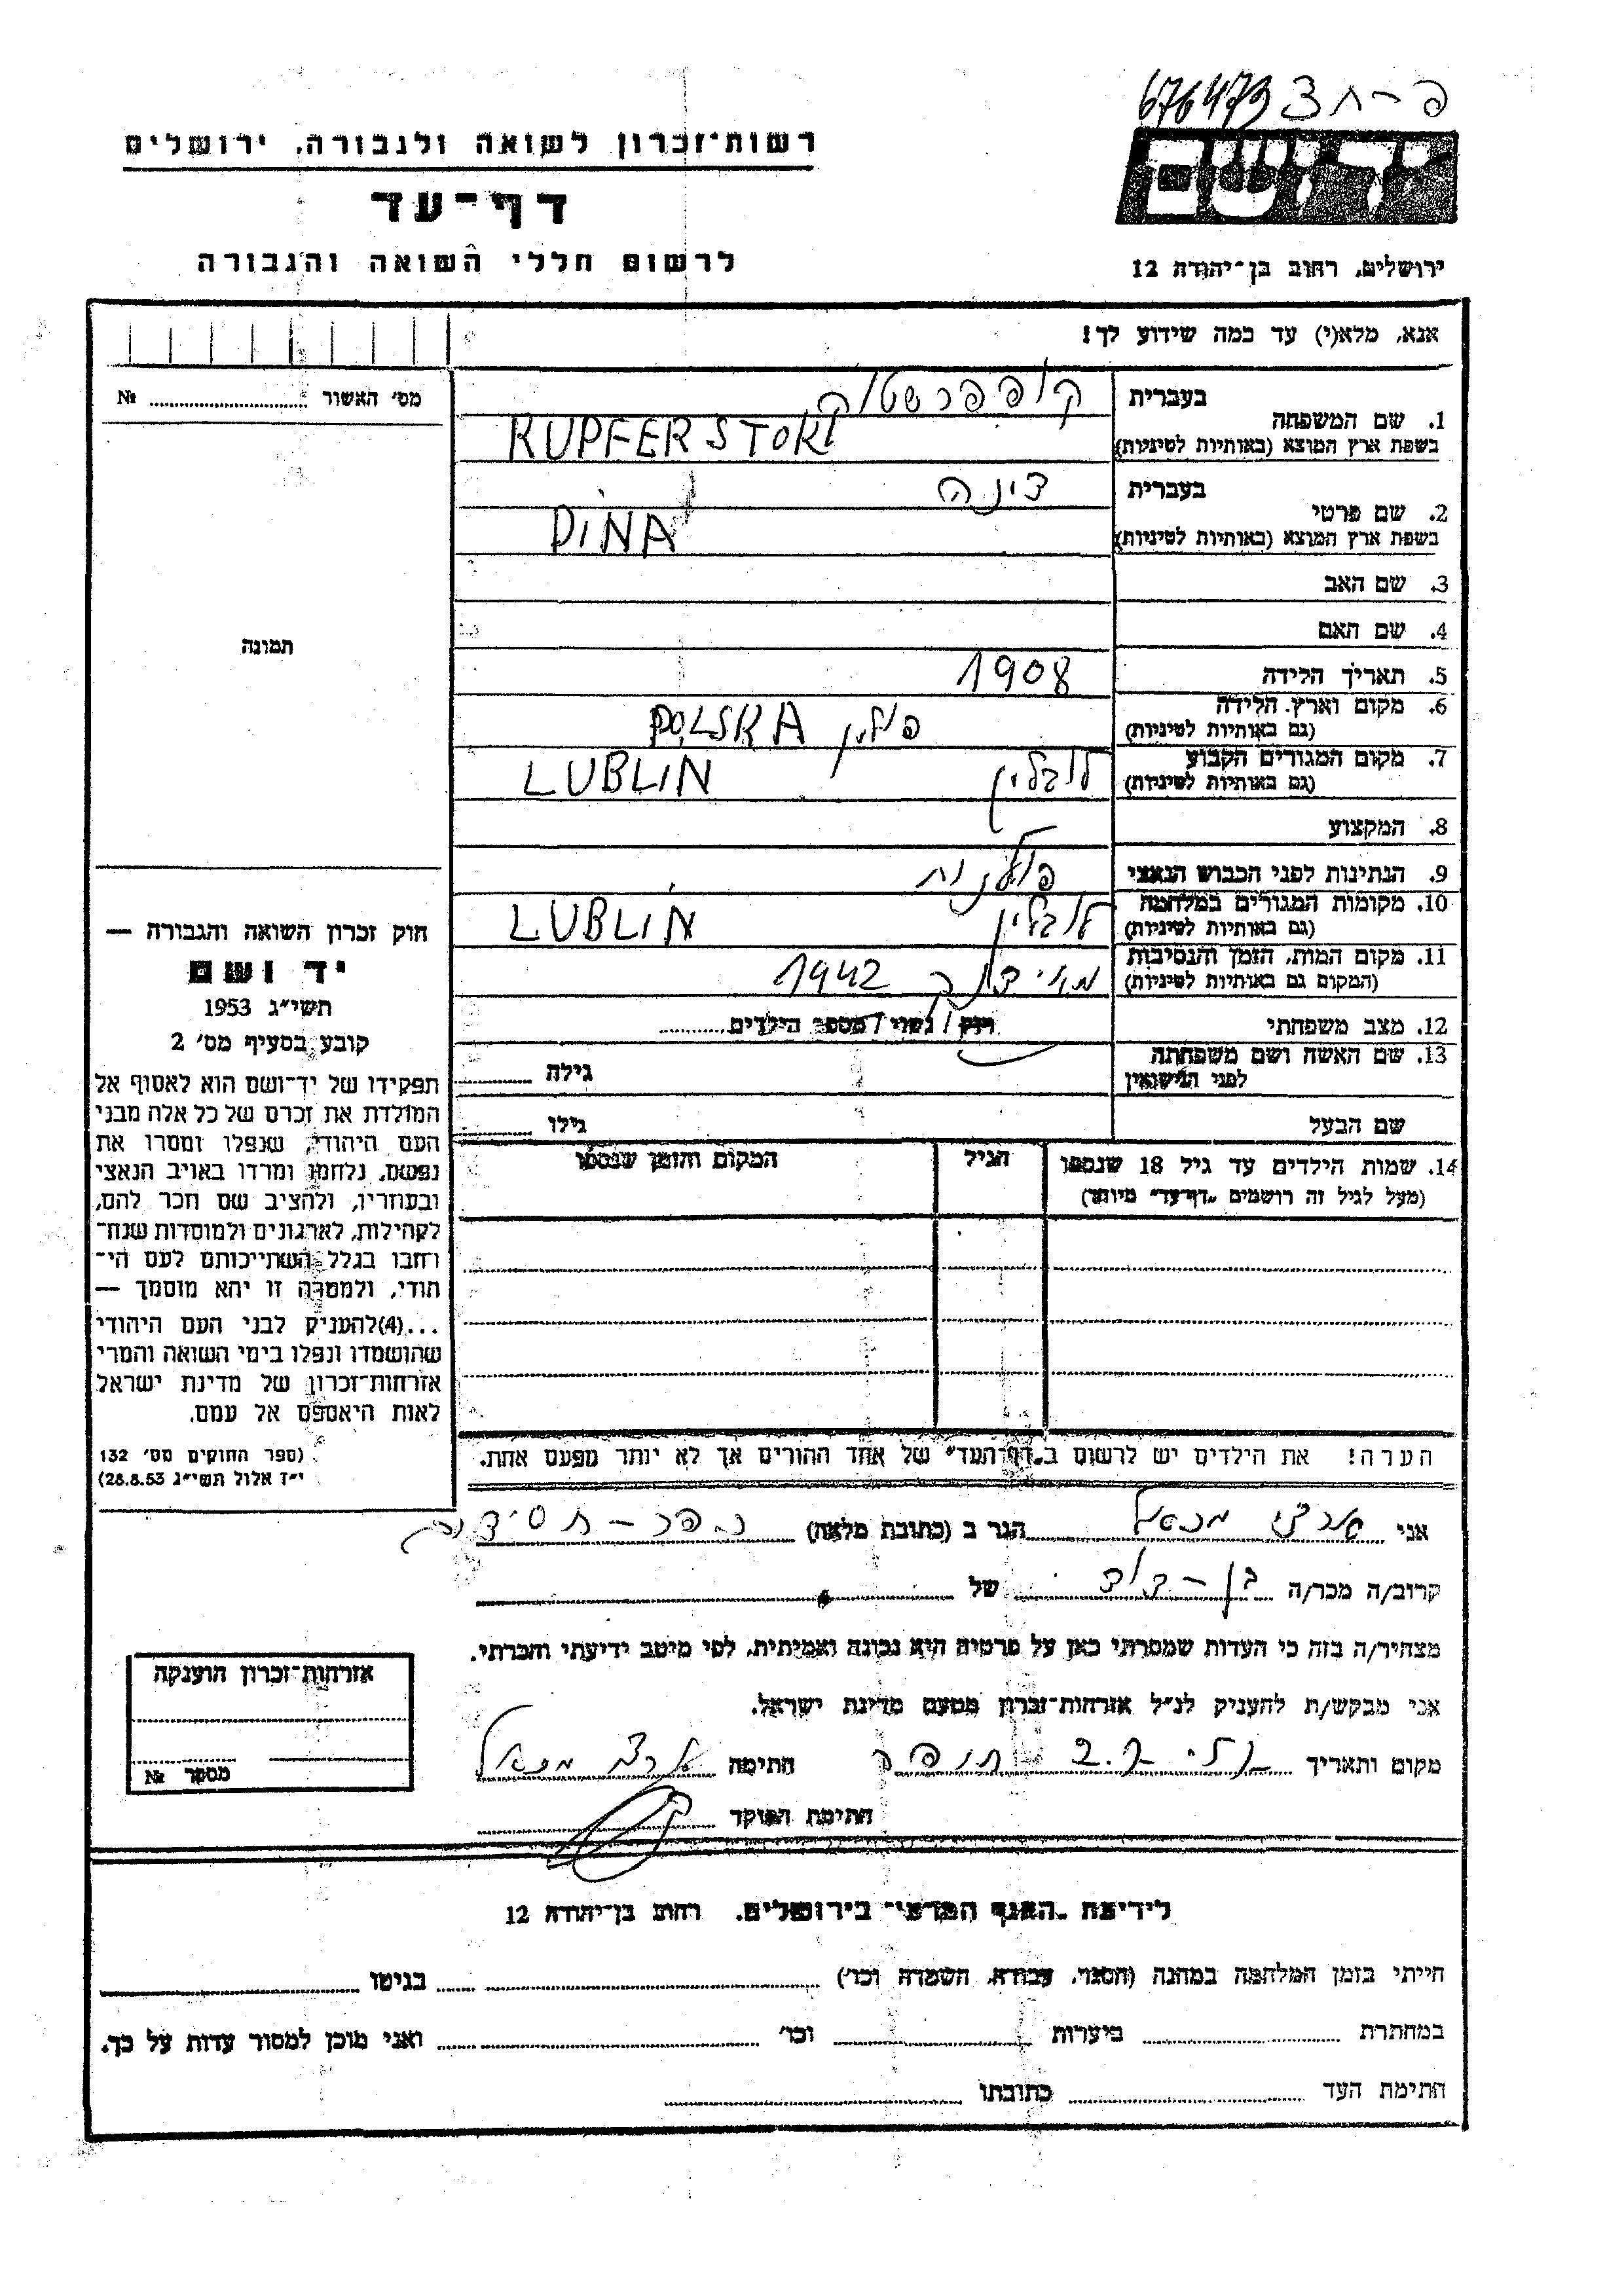 676473 פ-חצ
רשות־זכרון לשואה ולגבורה, ירושלים
יד ושם
דף־עד
לרשום חללי השואה והגבורה
ירושלים, רחוב בן־יהודה 12
אנא, מלא(י) עד כמה שידוע לך!
מס׳ האשור № 
1. שם המשפחה
בעברית קופפרשטוק
בשפת ארץ המוצא (באותיות לטיניות) KUPFERSTOK
2. שם פרטי
בעברית דינה
בשפת ארץ המוצא (באותיות לטיניות) DINA
3. שם האב
4. שם האם
תמונה
5. תאריך הלידה 1908
6. מקום וארץ הלידה
(גם באותיות לטיניות) פולין POLSKA
7. מקום המגורים הקבוע
(גם באותיות לטיניות) לובלין LUBLIN
8. המקצוע
9. הנתינות לפני הכבוש הנאצי פולנית
10. מקומות המגורים במלחמה
(גם באותיות לטיניות) לובלין LUBLIN
11. מקום המות, הזמן והנסיבות
(המקום גם באותיות לטיניות) מידנק 1942
12. מצב משפחתי רווק / נשוי / מספר הילדים
13. שם האשה ושם משפחתה
לפני הנישואין גילה
שם הבעל גילו
14. שמות הילדים עד גיל 18 שנספו הגיל המקום והזמן שנספו
(מעל לגיל זה רושמים „דף־עד״ מיוחד)
חוק זכרון השואה והגבורה —
יד ושם
תשי״ג 1953
קובע בסעיף מס׳ 2
תפקידו של יד־ושם הוא לאסוף אל
המולדת את זכרם של כל אלה מבני
העם היהודי, שנפלו ומסרו את
נפשם, נלחמו ומרדו באויב הנאצי
ובעוזריו, ולהציב שם וזכר להם,
לקהילות, לארגונים ולמוסדות שנח־
רחבו בגלל השתייכותם לעם הי־
הודי, ולמטרה זו יהא מוסמך —
...(4) להעניק לבני העם היהודי
שהושמדו ונפלו בימי השואה והמרי
אזרחות־זכרון של מדינת ישראל
לאות היאספם אל עמם.
(ספר החוקים מס׳ 132
י״ז אלול תשי״ג 28.8.53)
הערה! את הילדים יש לרשום ב„דף־העד״ של אחד ההורים אך לא יותר מפעם אחת.
אני ארצי מכאל הגר ב (כתובת מלאה) כפר-חסידים
קרוב/ה מכר/ה בן-דוד של
מצהיר/ה בזה כי העדות שמסרתי כאן על פרטיה היא נכונה ואמיתית, לפי מיטב ידיעתי והכרתי.
אני מבקש/ת להעניק לנ״ל אזרחות־זכרון מטעם מדינת ישראל.
מקום ותאריך חתימה ארצי מכאל
חתימת הפוקד
אזרחות־זכרון הוענקה
מספר №
לידיעת „האגף המדעי״ בירושלים, רחוב בן־יהודה 12
הייתי בזמן המלחמה במחנה (הסגר, עבודה, השמדה וכו׳) בגיטו
במחתרת ביערות וכו׳ ואני מוכן למסור עדות על כך.
חתימת העד כתובתו